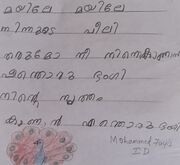 മയിലേ മയിലേ
നിന്നുടെ പീലി
തരുമോ നീ നിന്നെക്കാണാൻ
എന്തൊരു ഭംഗി
നിന്റെ നൃത്തം
കാണാൻ എന്തൊരു ഭംഗി
Mohammed
I D